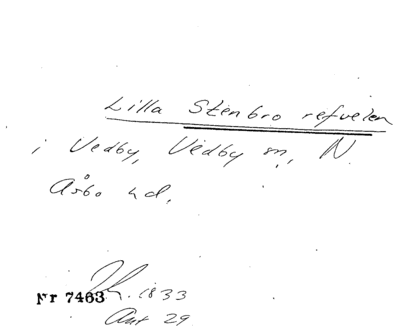 Lilla Stenbro refvelen
i Vedby, Vedby sn, N
Åsbo hd,
Nr 7463
1833
Akt 29